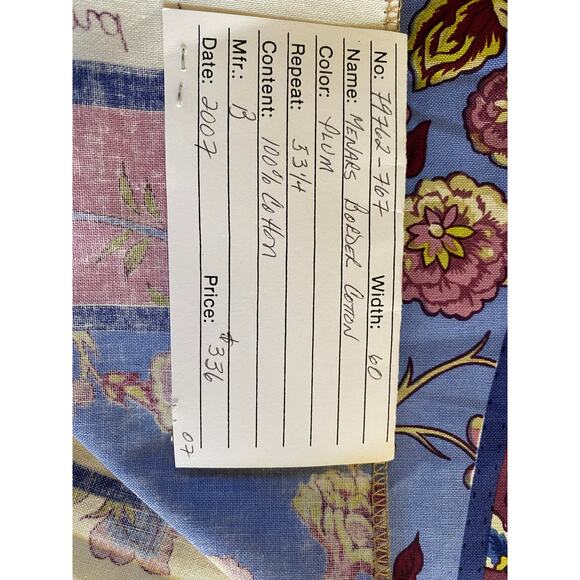 No: 79762-767 Width: 60
Name: MENARS BORDER COTTON
Color: PLUM
Repeat: 5 3/4
Content: 100% Cotton
Mfr.: B
Date: 2007 Price: $336
07